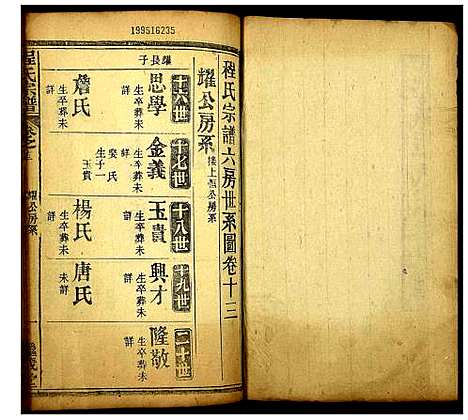 199516235
程氏宗譜六房世系圖卷十三
耀公房系
接上恒公房系
十六世
十七世
十八世
十九世
二十世
耀長子
思學
生卒葬未詳
詹氏
生卒葬未詳
金義
生卒葬未詳
娶氏
生子一
玉貴
玉貴
生卒葬未詳
楊氏
生卒葬未詳
興才
生卒葬未詳
唐氏
未詳
隆敬
生卒葬未詳
程氏宗譜
耀公房系
一